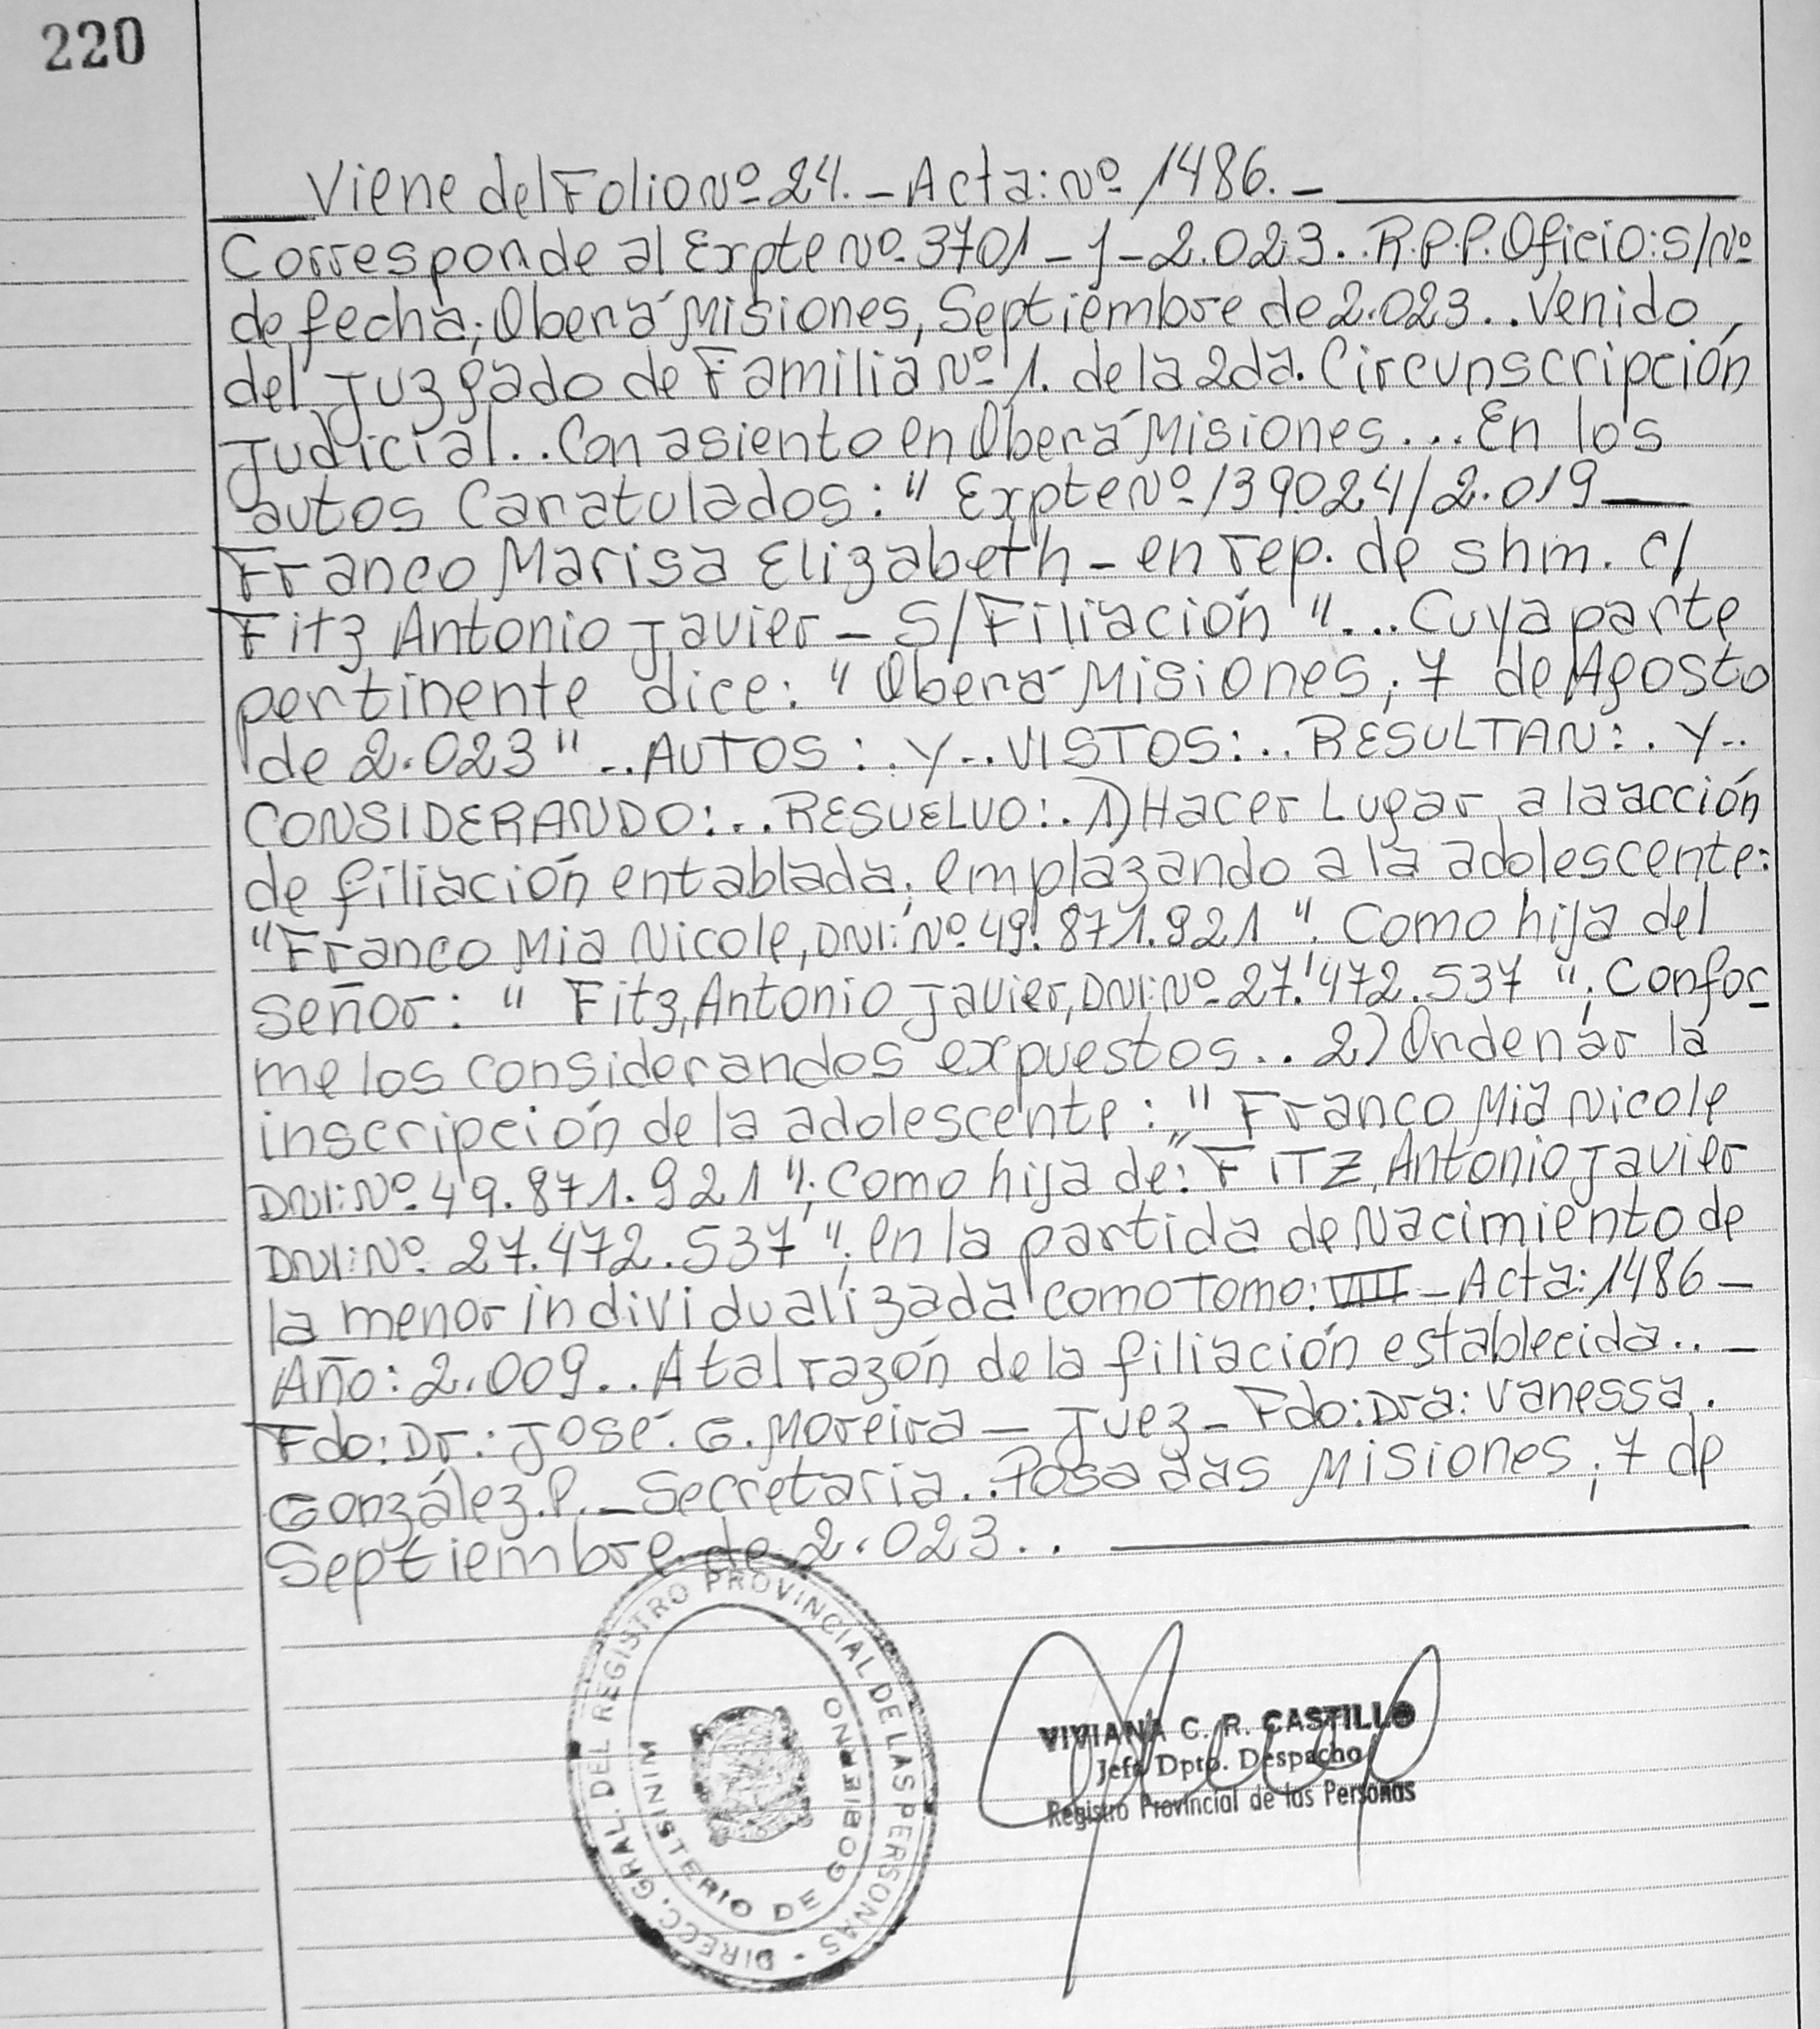 220
Viene del Folio Nº 24. - Acta: Nº 1486. -
Corresponde al Expte Nº 3701 - J - 2.023.. R.P.P. Oficio: S/Nº
de fecha; Oberá Misiones, Septiembre de 2.023.. Venido
del Juzgado de Familia Nº 1. de la 2da. Circunscripción
Judicial.. Con asiento en Oberá Misiones... En los
autos Caratulados: " Expte Nº 139024/2.019
Franco Marisa Elizabeth - en rep. de shm. c/
Fitz Antonio Javier - S/Filiación "... Cuya parte
pertinente dice: " Oberá Misiones; 7 de Agosto
de 2.023 ".. AUTOS: Y.. VISTOS:.. RESULTAN:. Y..
CONSIDERANDO:.. RESUELVO:. 1) Hacer Lugar a la acción
de filiación entablada, emplazando a la adolescente:
"Franco Mia Nicole, DNI: Nº 49.871.921 ". Como hija del
Señor: " Fitz, Antonio Javier, DNI: Nº 27.472.537 "; Confor
me los considerandos expuestos.. 2) Ordenar la
inscripción de la adolescente: " Franco Mia Nicole
DNI: Nº 49.871.921 "; Como hija de: " FITZ, Antonio Javier
DNI: Nº 27.472.537 "; en la partida de Nacimiento de
la menor individualizada como Tomo: VIII - Acta: 1486 -
Año: 2.009.. A tal razón de la filiación establecida.. -
Fdo: Dr.: José. G. Moreira - Juez - Fdo: Dra: Vanessa.
González. P. - Secretaria.. Posadas Misiones; 7 de
Septiembre de 2.023..
DIRECC. GRAL. DEL REGISTRO PROVINCIAL DE LAS PERSONAS -
MINISTERIO DE GOBIERNO
VIVIANA C. R. CASTILLO
Jefe Dpto. Despacho
Registro Provincial de las Personas